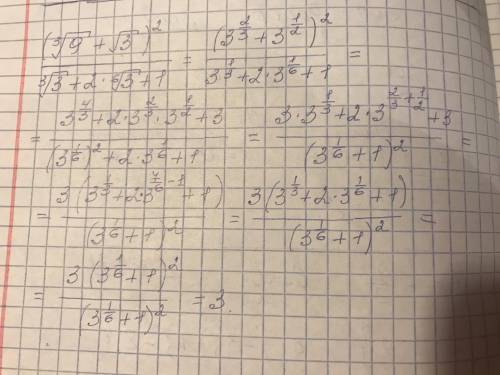 (∛9 + √3)² / (∛3 + 2·⁶√3 + 1) = (3^(2/3) + 3^(1/2))² / (3^(1/3) + 2·3^(1/6) + 1) =
= (3^(4/3) + 2·3^(2/3)·3^(1/2) + 3) / ((3^(1/6))² + 2·3^(1/6) + 1) = (3·3^(1/3) + 2·3^(2/3 + 1/2) + 3) / (3^(1/6) + 1)² =
= 3(3^(1/3) + 2·3^(7/6 - 1) + 1) / (3^(1/6) + 1)² = 3(3^(1/3) + 2·3^(1/6) + 1) / (3^(1/6) + 1)² =
= 3(3^(1/6) + 1)² / (3^(1/6) + 1)² = 3.